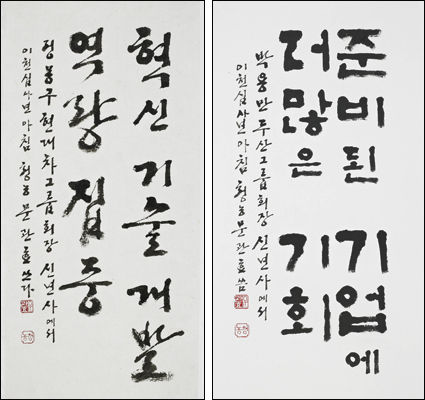 혁신 기술 개발
역량 집중
정몽구 현대차그룹회장 신년사에서
이천십사년 아침 청농 문관효 쓰다
준비된 기업에
더 많은 기회
박용만 두산그룹회장 신년사에서
이천십사년 아침 청농 문관효 씀